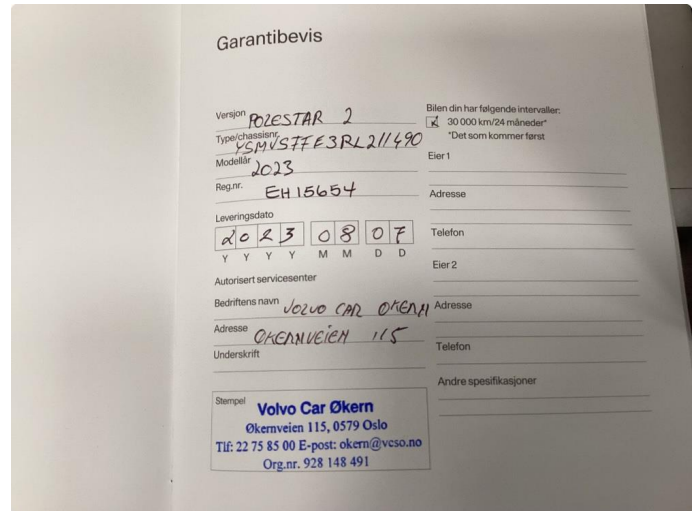 Garantibevis
Versjon POLESTAR 2
Type/chassisnr. YSMVSFFE3RL211490
Modellår 2023
Reg.nr. EH15654
Leveringsdato
2 0 2 3 0 8 0 7
Y Y Y Y M M D D
Autorisert servicesenter
Bedriftens navn VOLVO CAR OKERN
Adresse OKERNVEIEN 115
Underskrift
Stempel
Volvo Car Økern
Økernveien 115, 0579 Oslo
Tlf: 22 75 85 00 E-post: okern@vcso.no
Org.nr. 928 148 491
Bilen din har følgende intervaller:
30 000 km/24 måneder*
*Det som kommer først
Eier 1
Adresse
Telefon
Eier 2
Adresse
Telefon
Andre spesifikasjoner